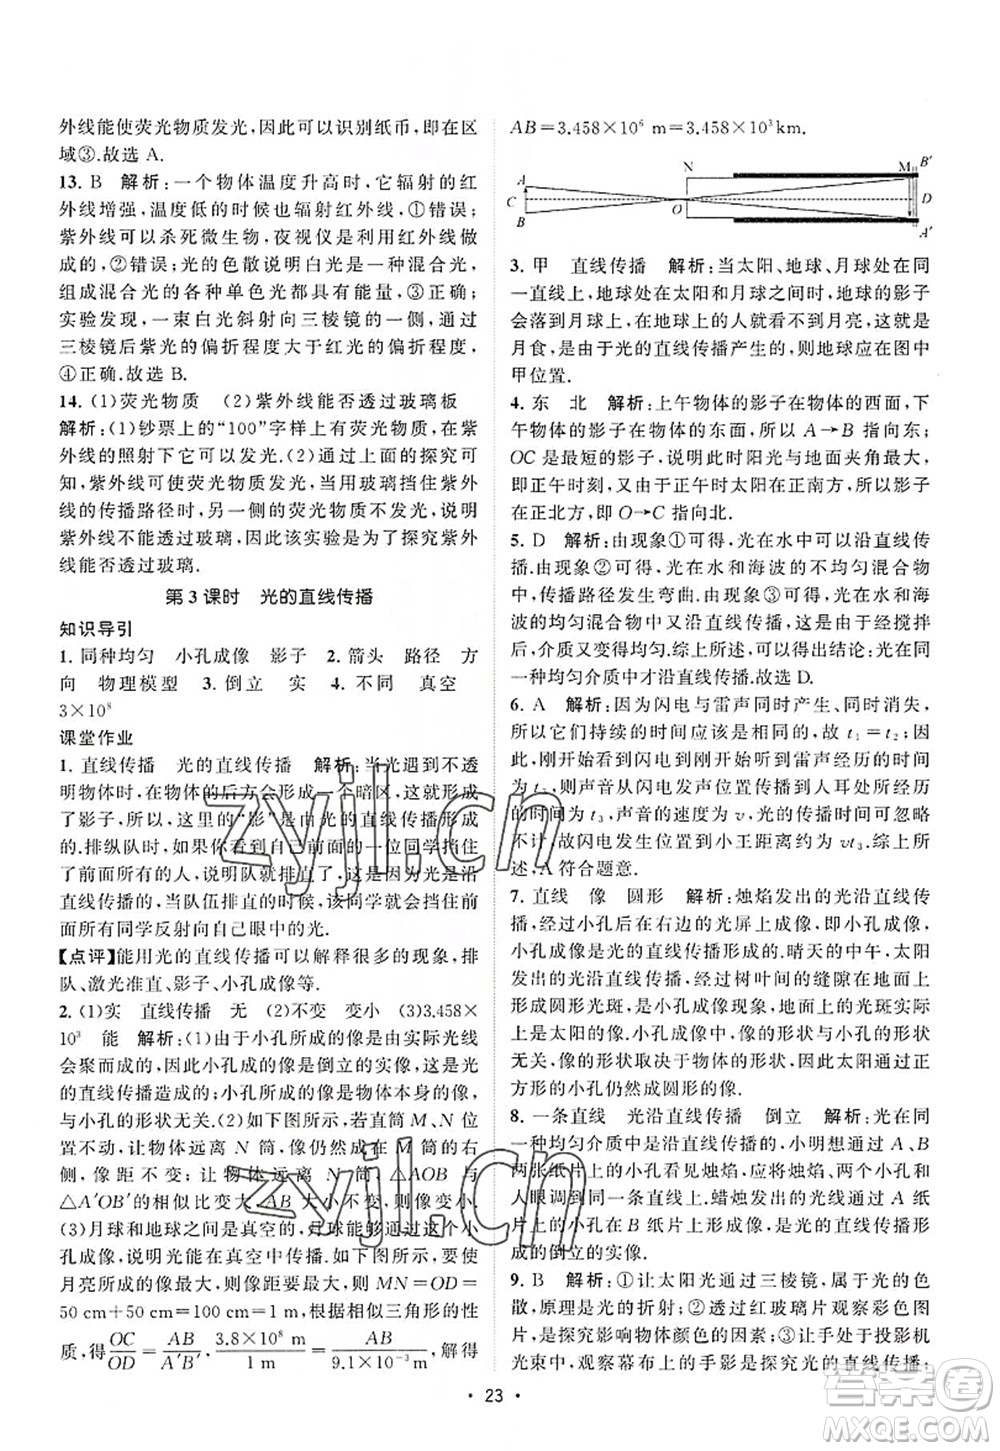 外线能使荧光物质发光,因此可以识别纸币,即在区
域③.故选 A.
13. B 解析:一个物体温度升高时,它辐射的红
外线增强,温度低的时候也辐射红外线,①错误;
紫外线可以杀死微生物,夜视仪是利用红外线做
成的,②错误;光的色散说明白光是一种混合光,
组成混合光的各种单色光都具有能量,③正确;
实验发现,一束白光斜射向三棱镜的一侧,通过
三棱镜后紫光的偏折程度比红光的偏折程度大,
④正确.故选 B.
14. (1)荧光物质 (2)紫外线能否透过玻璃板
解析:(1)钞票上的“100”字样上有荧光物质,在紫
外线的照射下它可以发光.(2)通过上面的探究可
知,紫外线可使荧光物质发光,用玻璃挡住紫外
线的传播路径时,另一侧的荧光物质不发光,说明
紫外线不能透过玻璃,该实验是为了探究紫外线
外线能否透过玻璃.
第 3 课时 光的直线传播
知识导引
1. 同种均匀 小孔成像 影子 2. 箭头 路径 方
向 物理模型 3. 倒立 实 4. 不同 真空
3×10⁸
课堂作业
1. 直线传播 光的直线传播 解析:当光遇到不透
明物体时,在物体的后方会形成一个暗区,即形成
了影子,所以,这里的“影”是由光的直线传播形成
的. 排纵队时,如果看不到前面的一位同学就挡住
了前面所有的人,说明队伍排直了.这是因为光是沿
直线传播的,当队伍排直的时候,前面的同学会挡住
前面所有同学反射向自己眼中的光.
【点评】能用光的直线传播可以解释很多的现象,排
队、激光准直、影子、小孔成像等.
2. (1)实 直线传播 无 (2)不变 变小 (3)3.458×
10³ 能 解析:(1)由于小孔所成的像是由实际光线
会聚而成的,因此所成的像是倒立的实像,这是光的
直线传播造成的;小孔所成的是物体本身的像,
与小孔的形状无关.(2)如下图所示,直筒 M、N 位
置不动,让物体远离 N 筒,像仍然成在 M 筒的右
侧,像距不变;让物体远离 N 筒,△AOB 与
△A′OB′的相似比变大,AB 大小不变,则像变小.
(3)月球和地球之间是真空的,月球可以通过小
孔成像,说明光能在真空中传播.如下图所示,要使
月亮所成的像最大,则像距要最大,即 MN=OD=
50 cm+50 cm=100 cm=1 m,根据相似三角形的性
质,得 OC/OD = AB/A′B′, 3.8×10⁸ m/1 m = AB/9.1×10⁻³ m,解得
AB=3.458×10⁶ m=3.458×10³ km.
A C B N O M B′ D A′
3. 甲 直线传播 解析:当太阳、地球、月球处在同
一直线上,地球处在太阳和月球之间时,地球的影子
会落到月球上,在地球上的人就看不到月亮,这就是
月食,是由于光的直线传播产生的,所以地球应在图中
甲位置.
4. 东 北 解析:上午物体的影子在物体的西面,下
午物体的影子在物体的东面,所以 A→B 指向东;
OC 是最短的影子,说明此时阳光与地面夹角最大,
即正午时刻,又由于正午时太阳在正南方,所以影子
在正北方,即 O→C 指向北.
5. D 解析:由现象①可得,光在水中可以沿直线传
播;由现象②可得,光在水和海波的不均匀混合物中
传播路径发生弯曲;由现象③可得,光在水和海
波的均匀混合物中又沿直线传播,这是由于经搅拌
后,介质又变均匀.综上所述,可以得出结论:光在同
一种均匀介质中才沿直线传播.故选 D.
6. A 解析:因为闪电与雷声同时产生、同时消失,
所以它们持续的时间应该是相等的,故 t₁=t₂;从
刚开始看到闪电到刚开始听到雷声经历的时间为
t₃,则声音从闪电发声位置传播到人耳处所经历的
时间也为 t₃,声音的速度为 v,光传播的时间可忽略
不计,故闪电发生位置到小王距离约为 vt₃.综上所
述,A 符合题意.
7. 直线 像 圆形 解析:烛焰发出的光沿直线传
播,经过小孔后在右边的光屏上成像,即小孔成像,
小孔成像是光的直线传播形成的.晴天的中午,太阳
发出的光沿直线传播,经过树叶间的缝隙在地面上
形成圆形光斑,是小孔成像现象,地面上的光斑实际
上是太阳的像.小孔成像所成像的形状与小孔形状
无关,像的形状取决于物体的形状,所以太阳通过正
方形的小孔仍然成圆形的像.
8. 一条直线 光沿直线传播 倒立 解析:光在同
一种均匀介质中是沿直线传播的,小明想通过 A、B
两张纸片上的小孔看见烛焰,应将烛焰、两个小孔和
人眼调到一条直线上.蜡烛发出的光线通过 A 纸
片上的小孔在 B 纸片上成像,是光沿直线传播形
成的倒立的实像.
9. B 解析:①让太阳光通过三棱镜,属于光的色
散,原理是光的折射;②通过红玻璃片观察彩色图
片,是探究影响物体颜色的因素;③让手处于投影机
光束中,观察幕布上的手影是探究光的直线传播;
· 23 ·
zyjl.cn
zyjl.cn
答案圈
MXQE.COM